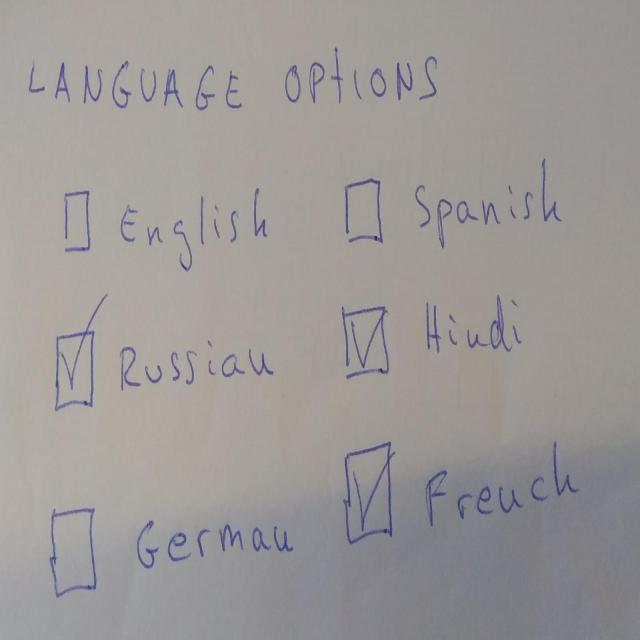 LANGUAGE OPTIONS
☐ English ☐ Spanish
☑ Russian ☑ Hindi
☐ German ☑ French